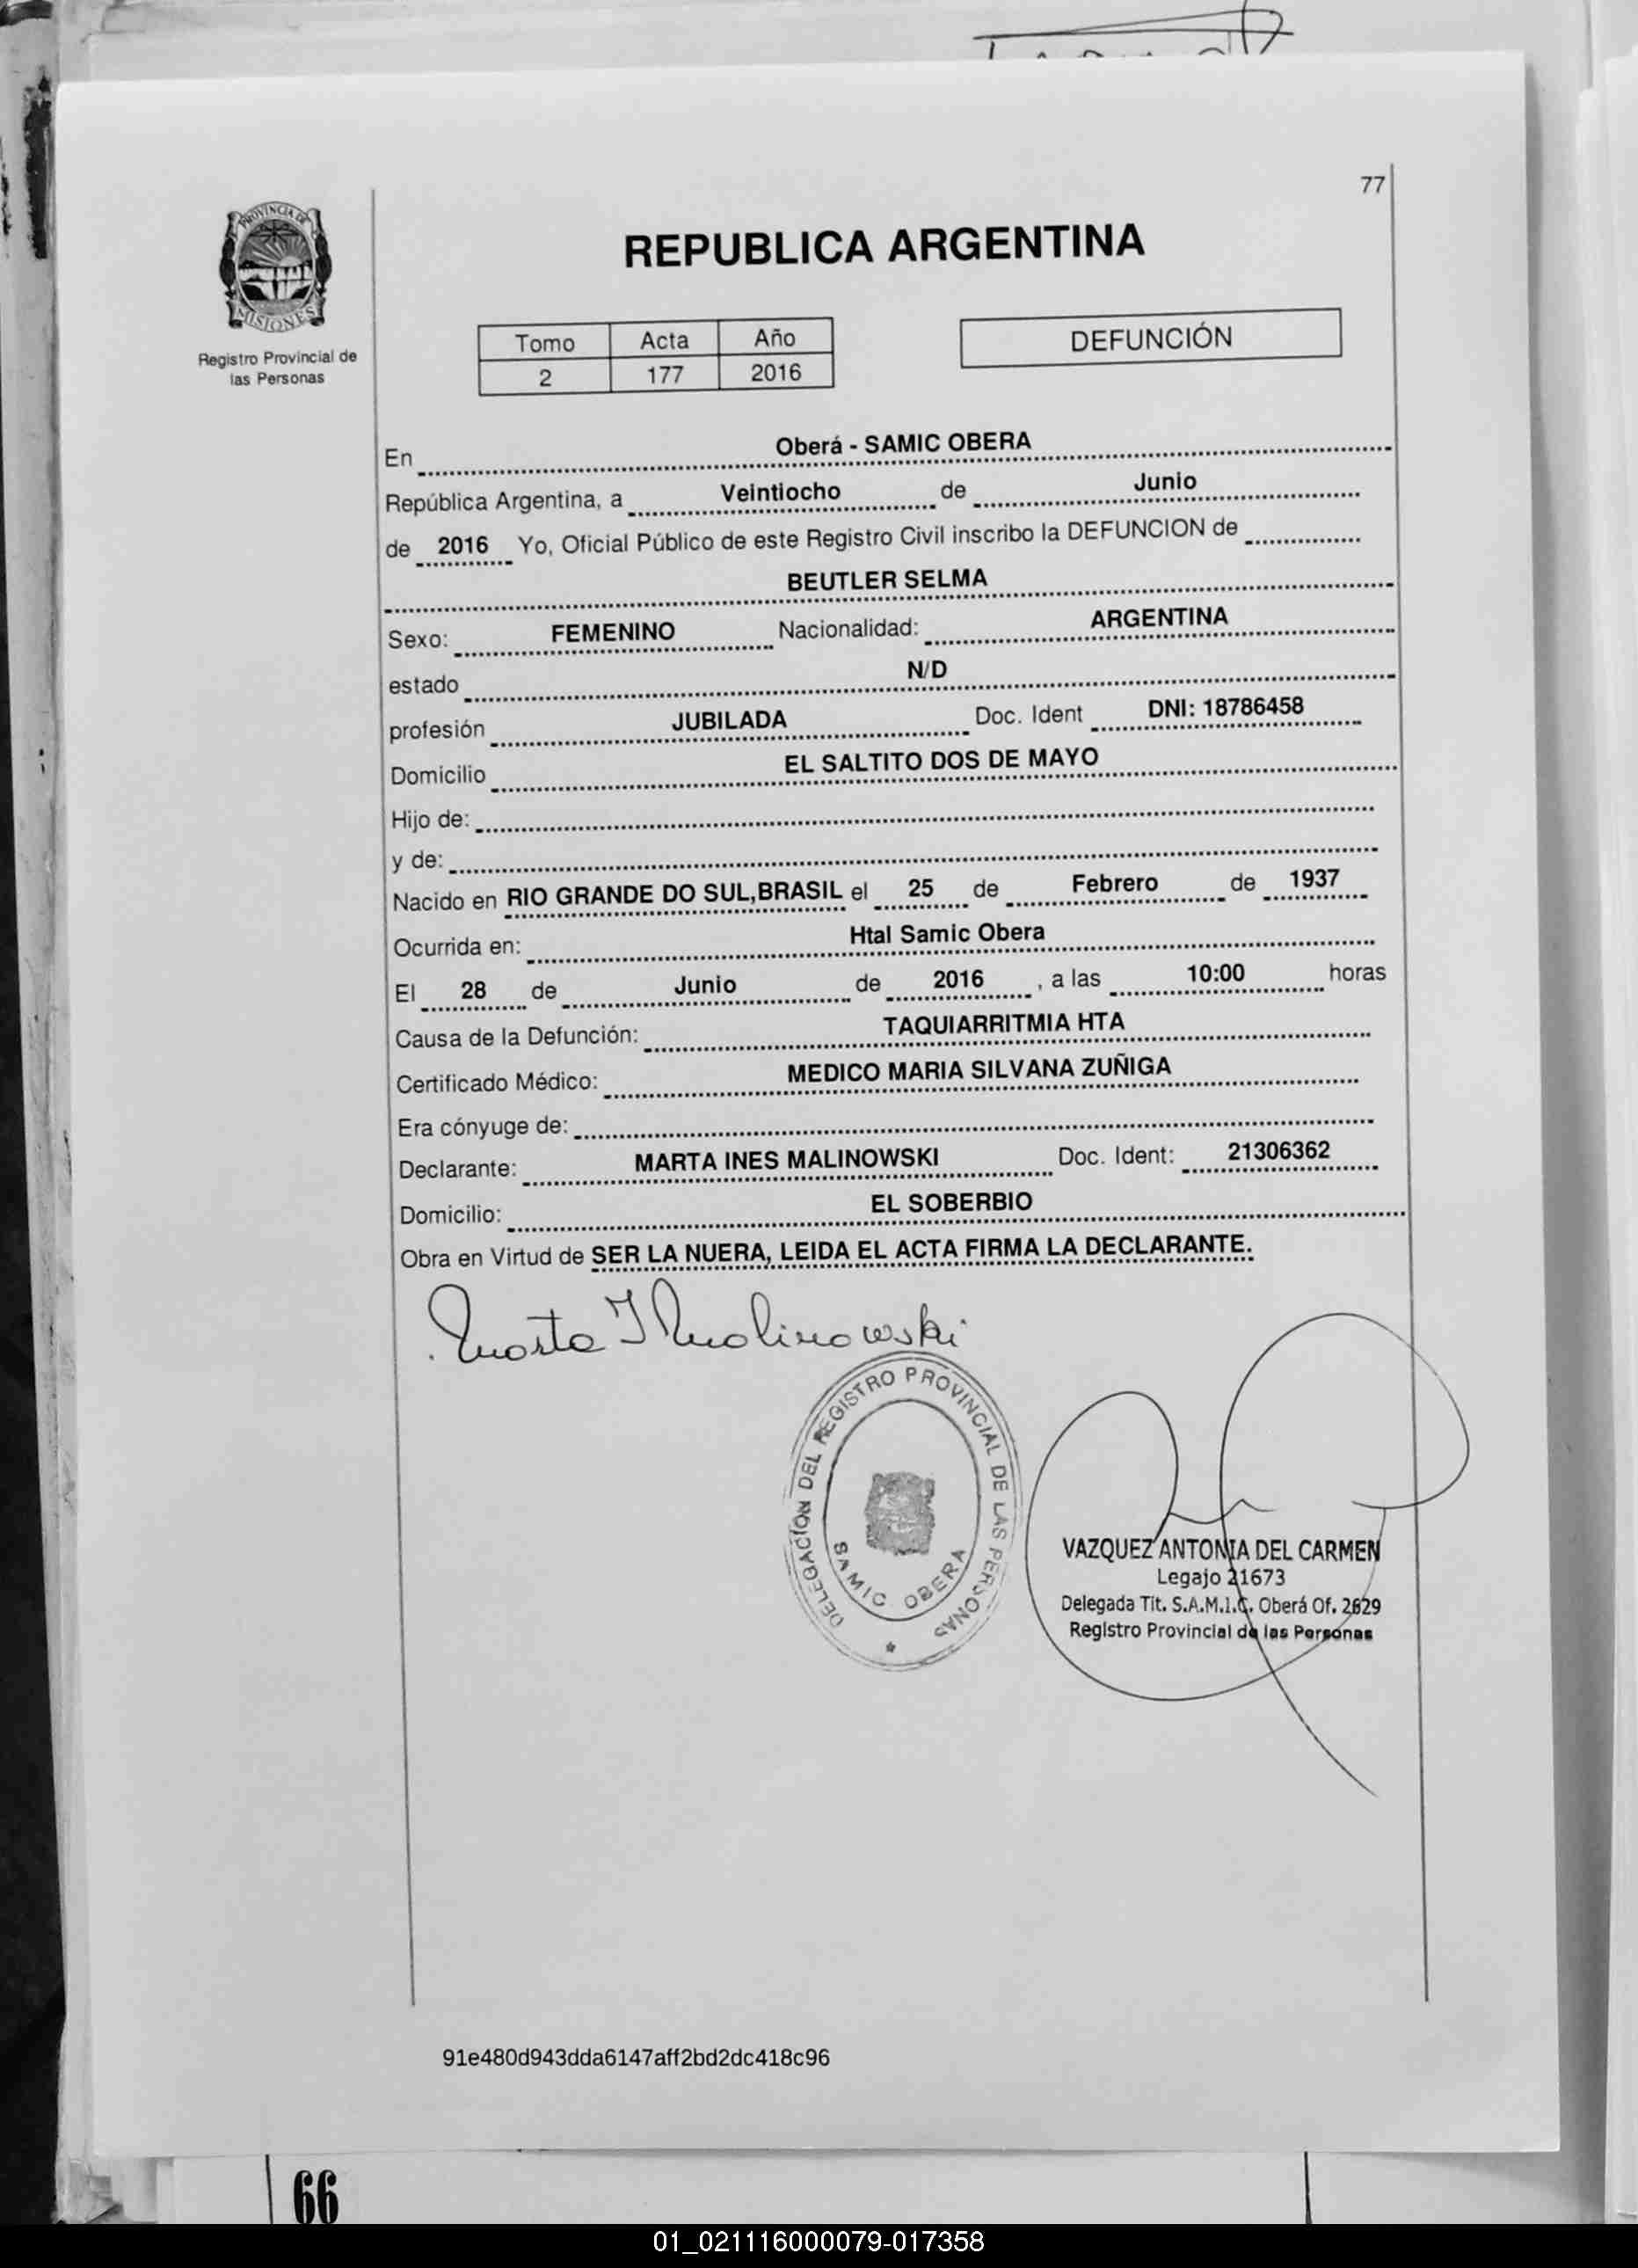 77
PROVINCIA DE
MISIONES
Registro Provincial de
las Personas
REPUBLICA ARGENTINA
Tomo Acta Año
2 177 2016
DEFUNCIÓN
En Oberá - SAMIC OBERA
República Argentina, a Veintiocho de Junio
de 2016 Yo, Oficial Público de este Registro Civil inscribo la DEFUNCION de
BEUTLER SELMA
Sexo: FEMENINO Nacionalidad: ARGENTINA
estado N/D
profesión JUBILADA Doc. Ident DNI: 18786458
Domicilio EL SALTITO DOS DE MAYO
Hijo de:
y de:
Nacido en RIO GRANDE DO SUL,BRASIL el 25 de Febrero de 1937
Ocurrida en: Htal Samic Obera
El 28 de Junio de 2016 , a las 10:00 horas
Causa de la Defunción: TAQUIARRITMIA HTA
Certificado Médico: MEDICO MARIA SILVANA ZUÑIGA
Era cónyuge de:
Declarante: MARTA INES MALINOWSKI Doc. Ident: 21306362
Domicilio: EL SOBERBIO
Obra en Virtud de SER LA NUERA, LEIDA EL ACTA FIRMA LA DECLARANTE.
Marta I Malinowski
DELEGACIÓN DEL REGISTRO PROVINCIAL DE LAS PERSONAS
SAMIC OBERA
VAZQUEZ ANTONIA DEL CARMEN
Legajo 21673
Delegada Tit. S.A.M.I.C. Oberá Of. 2629
Registro Provincial de las Personas
91e480d943dda6147aff2bd2dc418c96
66
01_021116000079-017358